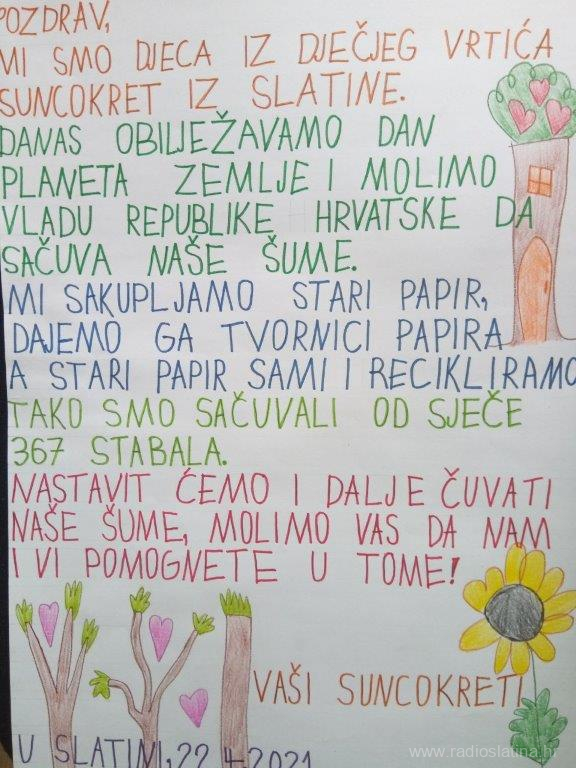 POZDRAV,
MI SMO DJECA IZ DJEČJEG VRTIĆA
SUNCOKRET IZ SLATINE.
DANAS OBILJEŽAVAMO DAN
PLANETA ZEMLJE I MOLIMO
VLADU REPUBLIKE HRVATSKE DA
SAČUVA NAŠE ŠUME.
MI SAKUPLJAMO STARI PAPIR,
DAJEMO GA TVORNICI PAPIRA
A STARI PAPIR SAMI I RECIKLIRAMO
TAKO SMO SAČUVALI OD SJEČE
367 STABALA.
NASTAVIT ĆEMO I DALJE ČUVATI
NAŠE ŠUME, MOLIMO VAS DA NAM
I VI POMOGNETE U TOME!
VAŠI SUNCOKRETI
U SLATINI, 22.4.2021
www.radioslatina.hr